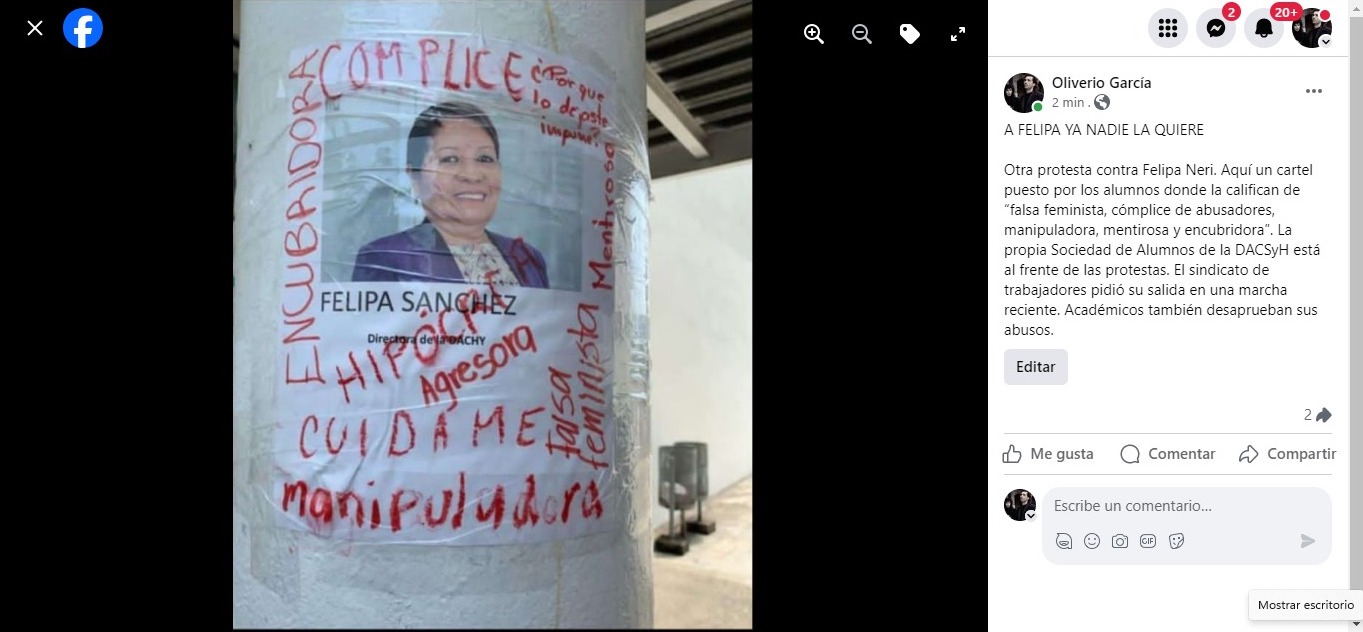 COMPLICE
¿Por que
lo dejaste
impune?
ENCUBRIDORA
Mentirosa
FELIPA SANCHEZ
Directora de la DACHY
HIPÓCRITA
Agresora
falsa
feminista
CUIDAME
manipuladora
2
20+
Oliverio García
2 min .
A FELIPA YA NADIE LA QUIERE
Otra protesta contra Felipa Neri. Aquí un cartel
puesto por los alumnos donde la califican de
“falsa feminista, cómplice de abusadores,
manipuladora, mentirosa y encubridora”. La
propia Sociedad de Alumnos de la DACSyH está
al frente de las protestas. El sindicato de
trabajadores pidió su salida en una marcha
reciente. Académicos también desaprueban sus
abusos.
Editar
2
Me gusta Comentar Compartir
Escribe un comentario...
GIF
Mostrar escritorio